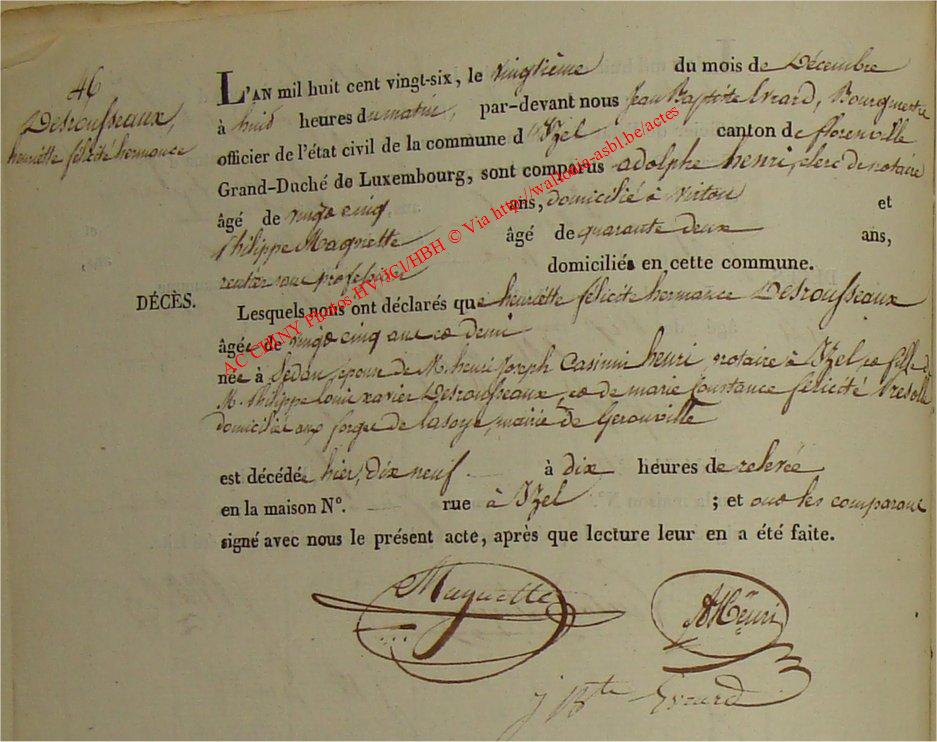 46
Desrousseaux,
henriette félicité hermance
L'AN mil huit cent vingt-six, le vingtième du mois de Décembre
à huit heures du matin, par-devant nous Jean Baptiste Evrard, Bourgmestre
officier de l'état civil de la commune d'Izel canton de florenville
Grand-Duché de Luxembourg, sont comparus adolphe henri, clerc de notaire
âgé de vingt cinq ans, domicilié à virton et
Philippe Maguette âgé de quarante deux ans,
rentier sans profession domiciliés en cette commune.
DÉCÈS.
Lesquels nous ont déclaré que henriette félicité hermance Desrousseaux
âgée de vingt cinq ans et demi
née à Sedan, épouse de M. henri Joseph Casimir henri, notaire à Izel, et fille de
M. Philippe Louis xavier Desrousseaux, et de marie Constance félicité
domiciliés aux forges de lasoye, mairie de Gerouville
est décédée hier, dix neuf à dix heures de relevée
en la maison N°. rue à Izel ; et ont les comparans
signé avec nous le présent acte, après que lecture leur en a été faite.
Maguette
AHenri
J Bte Evrard
AC CHINY Photos HV/JCJ/HBH © Via http://wallonia-asbl.be/actes